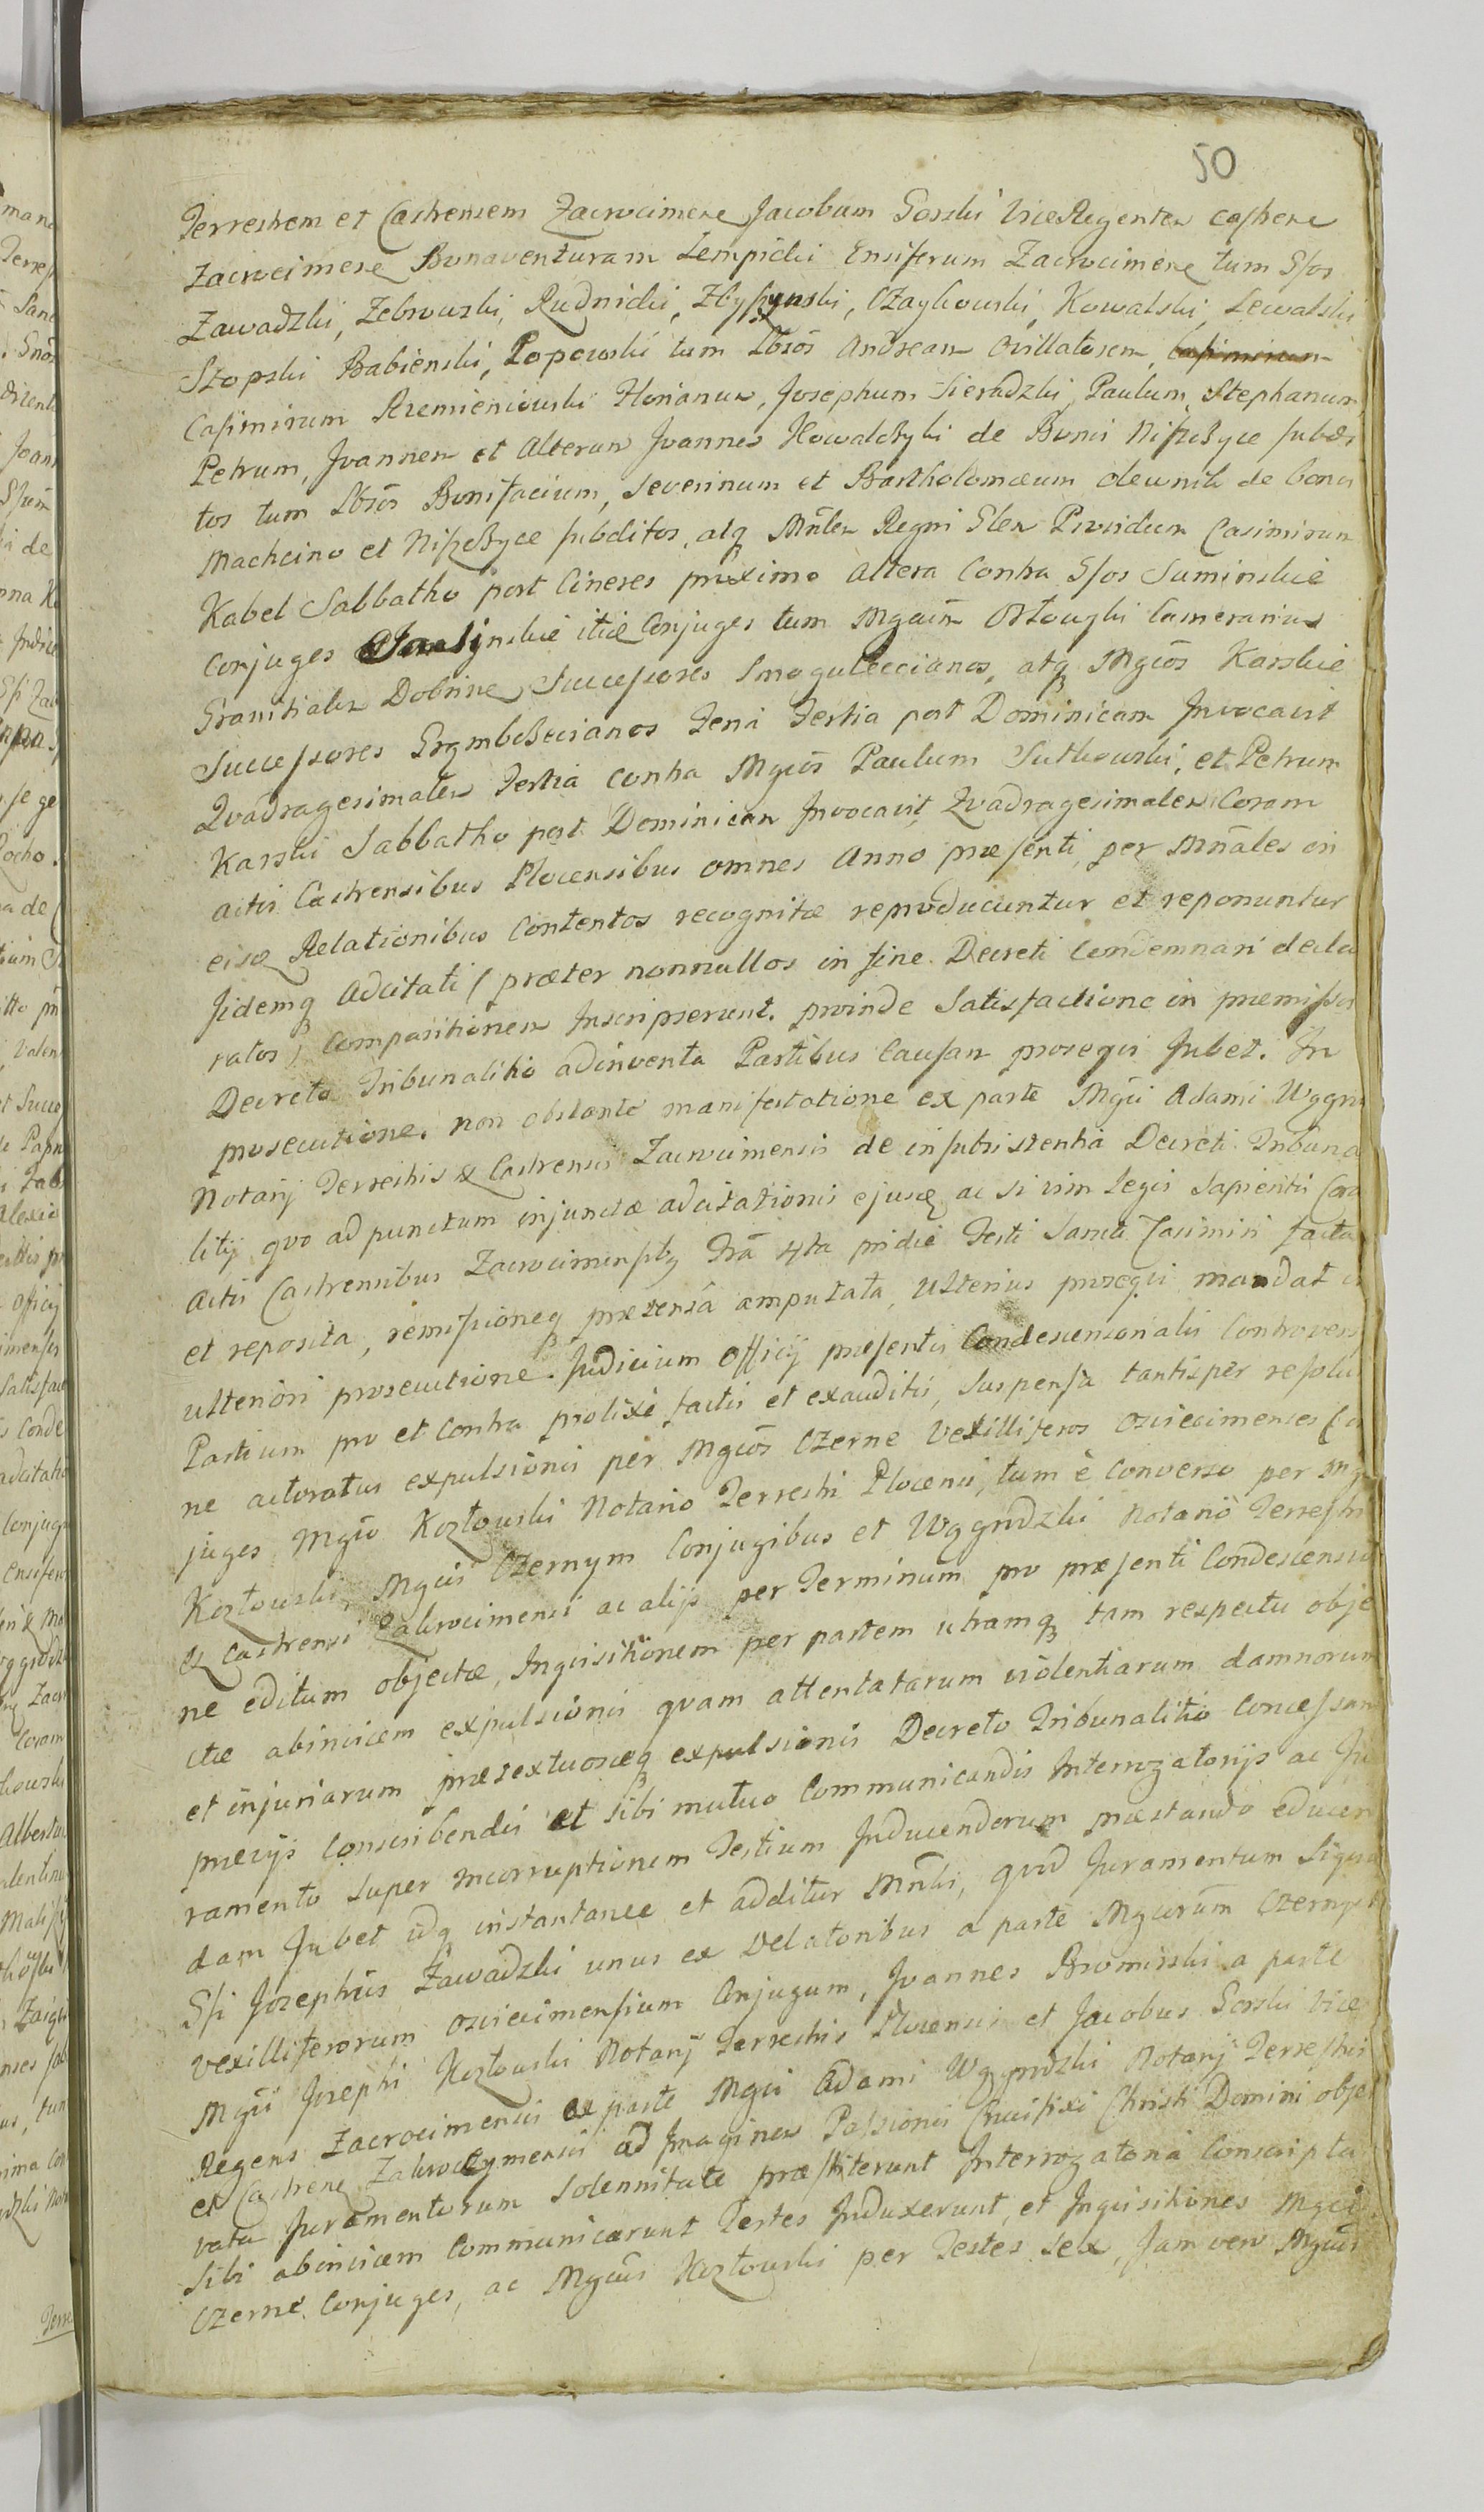 50
Terrestrem et Castrensem Zacrocimen Jacobum Gorski ViceRegentem castren
Zacrocimen Bonaventuram Lempicki Ensiferum Zacrocimen tum Gsos
Zawadzki, Zebrowski, Rudnicki, Zbyszynski, Czaykowski, Kowalski, Lewalski
Stopski Babienski, Popowski tum Lbros Andream Ovillatorem,
Casimirum Krzemieniowski Florianum, Josephum Sieradzki, Paulum, Stephanum,
Petrum, Joannem et Alterum Joannes Kowalczyki de Bonis Niszczyce subdi
tos tum Lbros Bonifacium, Severinum et Bartholomæum olewnik de bonis
Machcino et Niszczyce subditos, atq Mnlem Regni Glem Providum Casimirum
Kabel Sabbatho post Cineres proximo altera Contra Gsos Suminskie
Conjuges Jasinskie itie Conjuges tum Mgcum Ostowski Camerarium
Granitialem Dobrine, Successores Smoguleccianos, atq Mgcos Karskie
Successores Grgmboscianos Feria Tertia post Dominicam Invocavit
Quadragesimalem Tertia contra Mgcos Paulum Sutkowski, et Petrum
Karski Sabbatho post Dominicam Invocavit Quadragesimalem Coram
actis Castrensibus Plocensibus omnes Anno præsenti per Mnales in
eisq Relationibus Contentos recognitæ reproducuntur et reponuntur
Jidemq Adcitati (præter nonnullos in fine Decreti Condemnari decla
ratos) Comparitionem Inscripserunt. proinde Satisfactione in præmissis
Decreto Tribunalitio adinventa Partibus Causam prosequi Jubet. In
prosecutione. non obstante manifestatione ex parte Mgci Adami Wggro
Notarij Terrestris & Castrensis Zacrocimensis de insubsistentia Decreti Tribuna
litij quo ad punctum injunctæ adcitationis ejusq ac si vim Legis Sapientis Cora
actis Castrensibus Zacrocimensib fra 4ta pridie Festi Sancti Casimiri facta
et reposita, remissioneq prætensâ amputata, ulterius prosequi mandat in
ulteriori prosecutione. Judicium officij præsentis Condescensorialis Controvers
Partium pro et Contra prolixè factis et exauditis, Suspensa tantisper resolu
ne actoratus expulsionis per Mgcos Czerne Vexilliferos Osviecimenses Con
juges Mgco Kozłowski Notario Terrestri Plocensi, tum è Converso per Mg
Kozłowski, Mgcis Czernym Conjugibus et Wggrodzki Notario Terrestri
& Castrensi Zakrocimensi ac alijs per Terminum pro præsenti Condescensio
ne editum objectæ, Inquisitionem per partem utramq tam respectu obje
ctæ abinvicem expulsionis quam attentatarum violentiarum damnorum
et injuriarum prætextuosæq expulsionis Decreto Tribunalitio Concessam
prævijs Conscribendis et sibi mutuo Communicandis Interrogatorijs ac Ju
ramento super Incorruptionem Testium Inducendorum præstando educen
dam Jubet idq instantanee et additur Mnlis, quod Juramentum Ligu
Gsi Josephus Zawadzki unus ex Delatoribus a parte Mgcorum Czernych
Vexilliferorum Osviecimensium Conjugum, Joannes Bromirski a parte
Mgci Josephi Kozłowski Notarij Terrestris Plocensis et Jacobus Gorski Vice
Regens Zacrocimensis ex parte Mgci Adami Wggrodzki Notarij Terrestris
et Castrens Zakroczymensis ad Imaginem Passionis Crucifixi Christi Domini obser
vata Juramentorum Solennitate præstiterunt Interrogatoria Conscripta
Sibi abinvicem Communicarunt Testes Induxerunt, et Inquisitiones Mgci
Czerne Conjuges, ac Mgcus Kozłowski per Testes Sex, Jam vero Mgcus